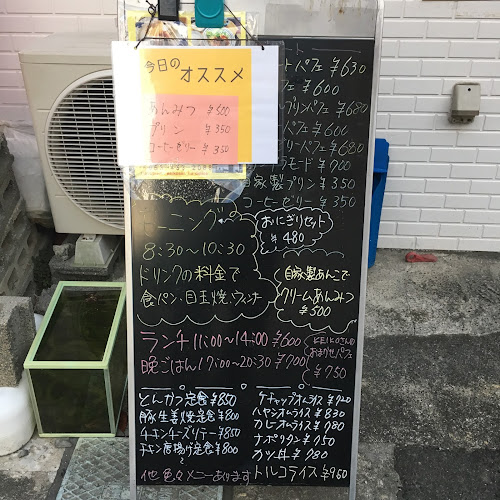 今日の
オススメ
あんみつ ¥500
プリン ¥350
コーヒーゼリー ¥350
ートパフェ ¥630
フェ ¥600
プリンパフェ ¥680
パフェ ¥600
リーパフェ ¥680
ラモード ¥700
自家製プリン ¥350
コーヒーゼリー ¥350
モーニング
8:30～10:30
ドリンクの料金で
食パン・目玉焼・ウィンナー
おにぎりセット
¥480
自家製あんこで
クリームあんみつ
¥500
ランチ 11:00～14:00 ¥600
晩ごはん 17:00～20:30 ¥700
KEIKOさんの
おまかせパフェ
¥750
とんかつ定食 ¥850
豚生姜焼定食 ¥800
チキンチーズソテー ¥850
チキン唐揚げ定食 ¥800
他 色々メニューあります
ケチャップオムライス ¥720
ハヤシオムライス ¥830
カレーオムライス ¥780
ナポリタン ¥750
カツ丼 ¥780
トルコライス ¥950